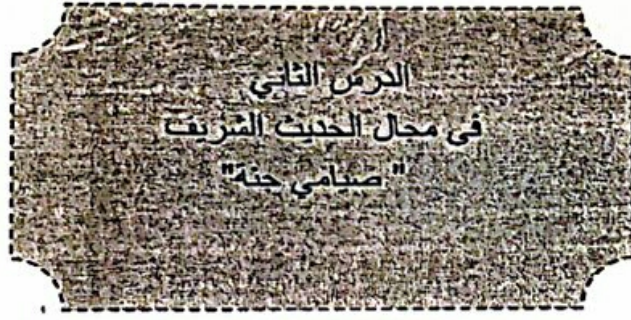 الدرس الثاني
في مجال الحديث الشريف
" صيامي جنة"